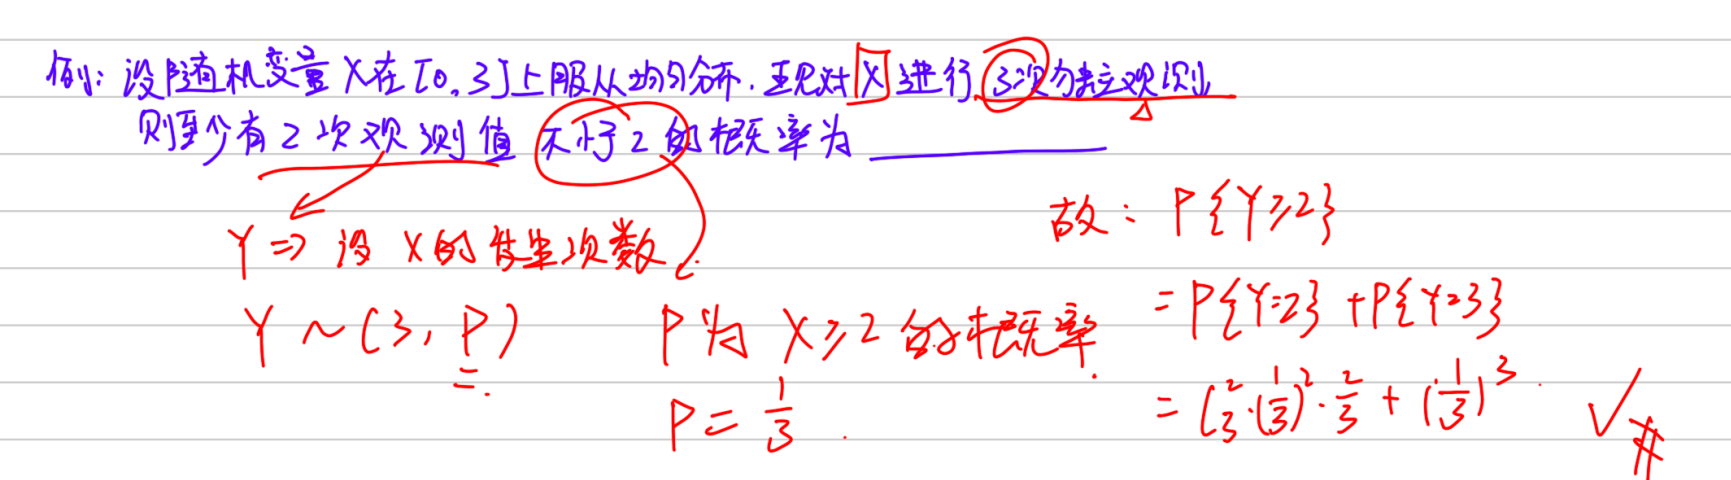 例: 设随机变量 X在[0,3]上服从均匀分布.现对X进行3次独立观测
则至少有2次观测值 不小于2的概率为 ________
Y⇒ 设 X的发生次数
Y ~ (3, P)
P为 X≥2 的概率.
P = 1/3 .
故: P{Y≥2}
= P{Y=2} + P{Y=3}
= C₃²·(1/3)²·2/3 + (1/3)³. ✓ #